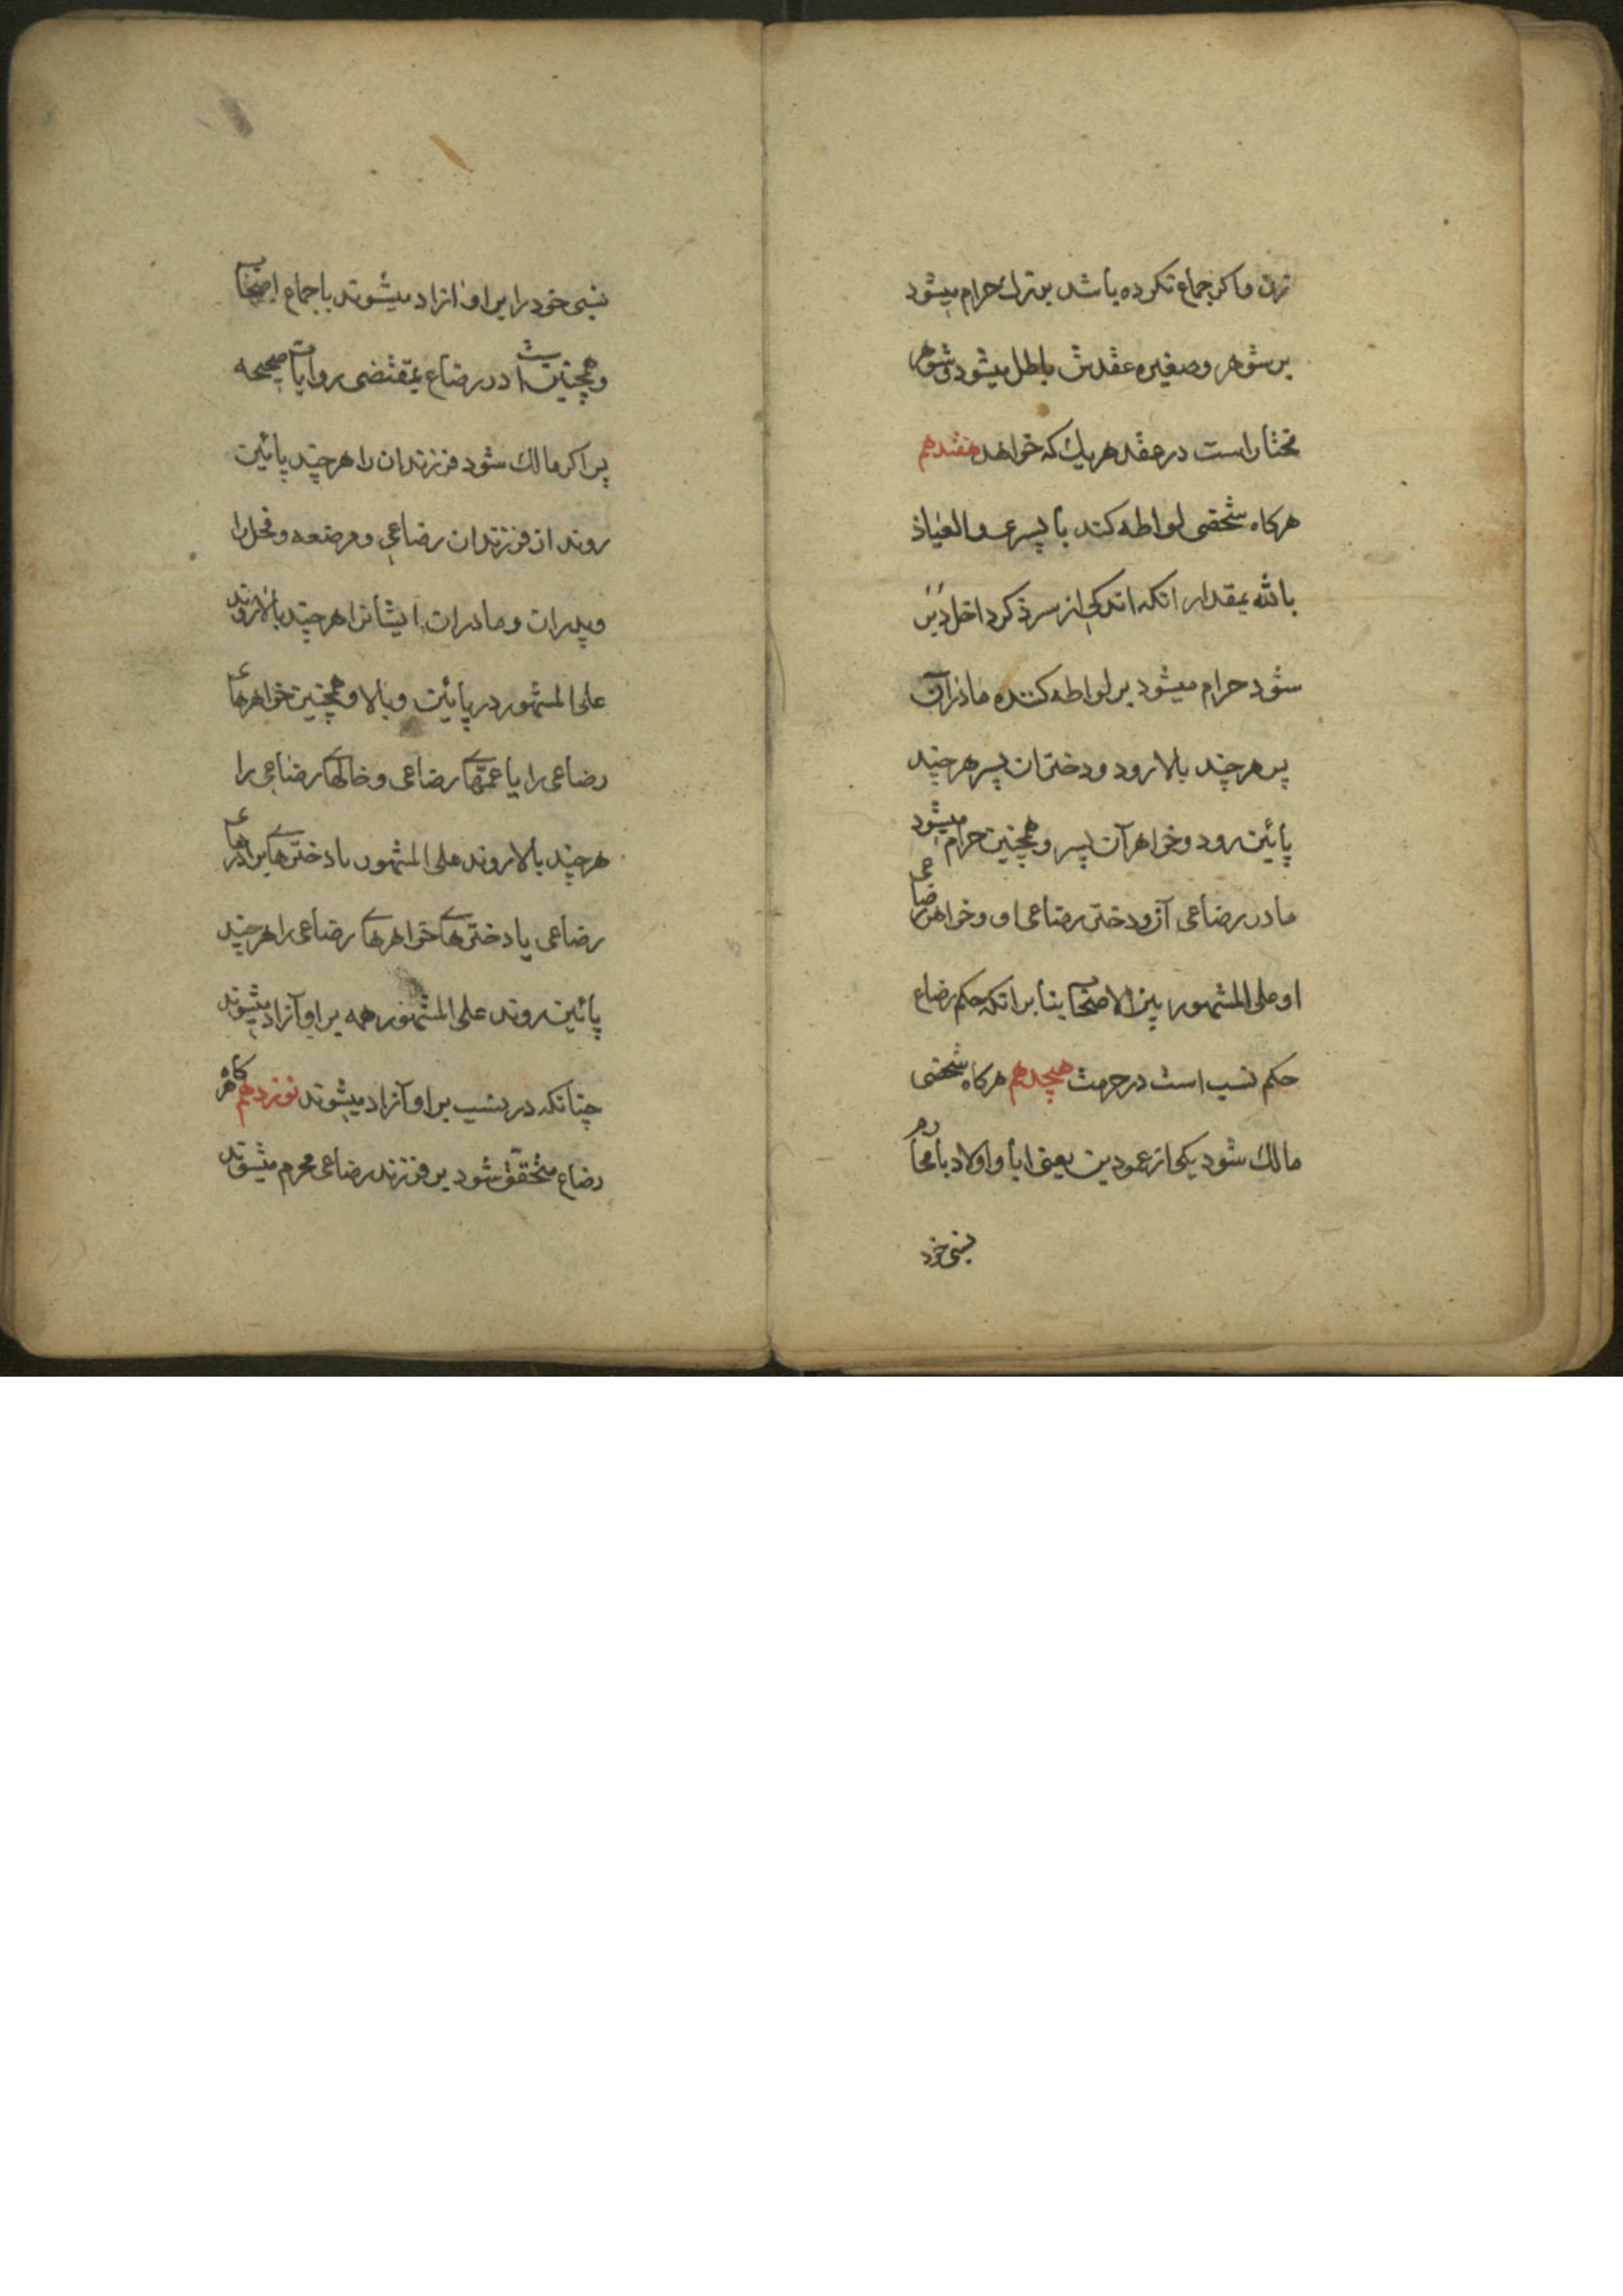 زن و اکر جماع نکرده باشد بزرك حرام میشود
بر شوهر و صغیره عقدش باطل میشود و شوهر
مختار است در عقد هر یك که خواهد هفتدهم
هرکاه شخصی لواطه کند با پسری و العیاذ
بالله بمقدار انکه اندکی از سر ذکر داخل دبر
شود حرام میشود بر لواطه کننده مادر آن
پسر هر چند بالا رود و دختر ان پسر هر چند
پائین رود و خواهر آن پسر و همچنین حرام میشود
مادر رضاعی آن و دختر رضاعی او و خواهر رضاعی
او علی المشهور بین الاصحاب بنا بر انکه حکم رضاع
حکم نسب است در حرمت هیجدهم هرکاه شخصی
مالك شود یکی از عمودین یعنی ابا و اولاد یا محارم
نسبی خود
نسبی خود را بر او ازاد میشوند باجماع اصحاب
و همچنین است در رضاع بمقتضی روایات صحیحه
پس اکر مالك شود فرزندان را هر چند پائین
روند از فرزندان رضاعی و مرضعه و فحل را
و پدران و مادران ایشانرا هر چند بالا روند
علی المشهور در پائین و بالا و همچنین خواهرهای
رضاعی را یا عمتهای رضاعی و خالهای رضاعی را
هر چند بالا روند علی المشهور یا دخترهای برادرهای
رضاعی یا دخترهای خواهرهای رضاعی را هر چند
پائین روند علی المشهور همه بر او آزاد میشوند
چنانکه در نسب بر او آزاد میشوند نوزدهم هرکاه
رضاع متحقق شود بر فرزند رضاعی محرم میشوند